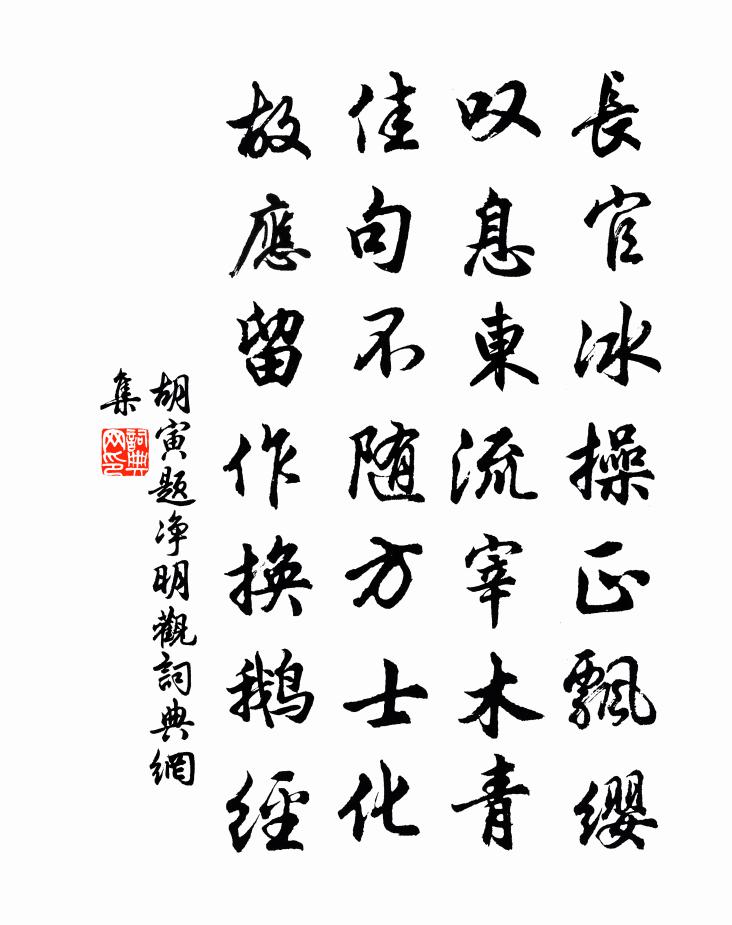 長官冰操正飄纓
叹息東流宰木青
佳句不随方士化
故應留作換鵝經
胡寅题净明觀詞典網
集
詞典
网印